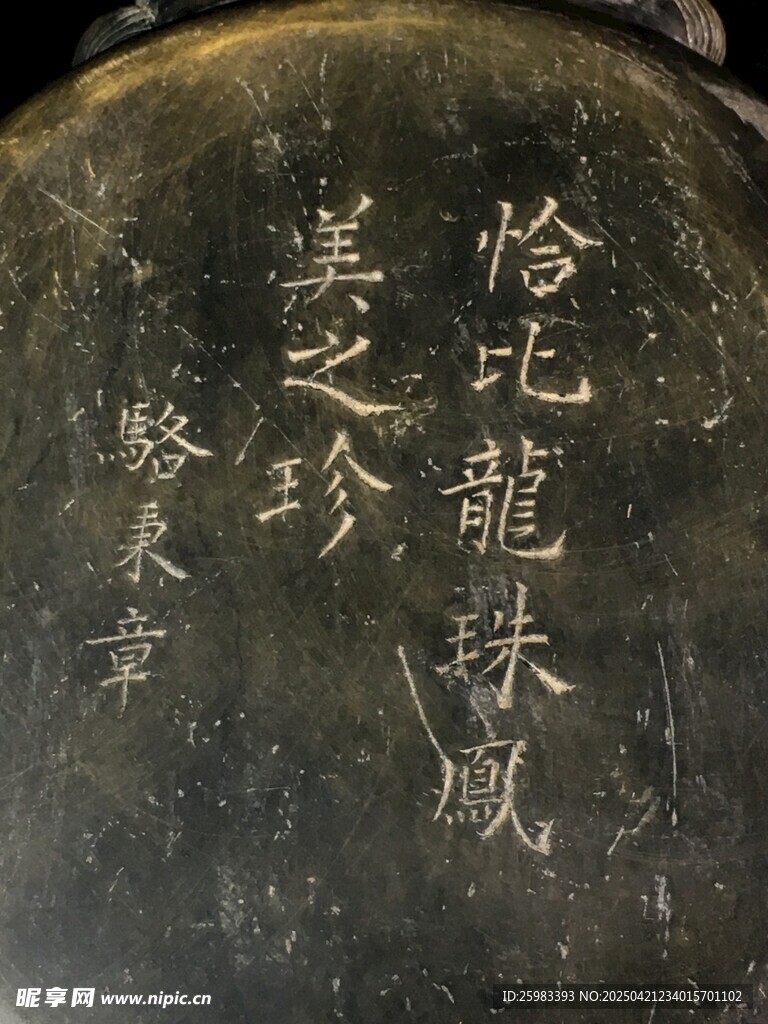 恰比龍珠鳳
美之珍
駱秉章
昵享网 www.nipic.cn
ID:25983393 NO:20250421234015701102